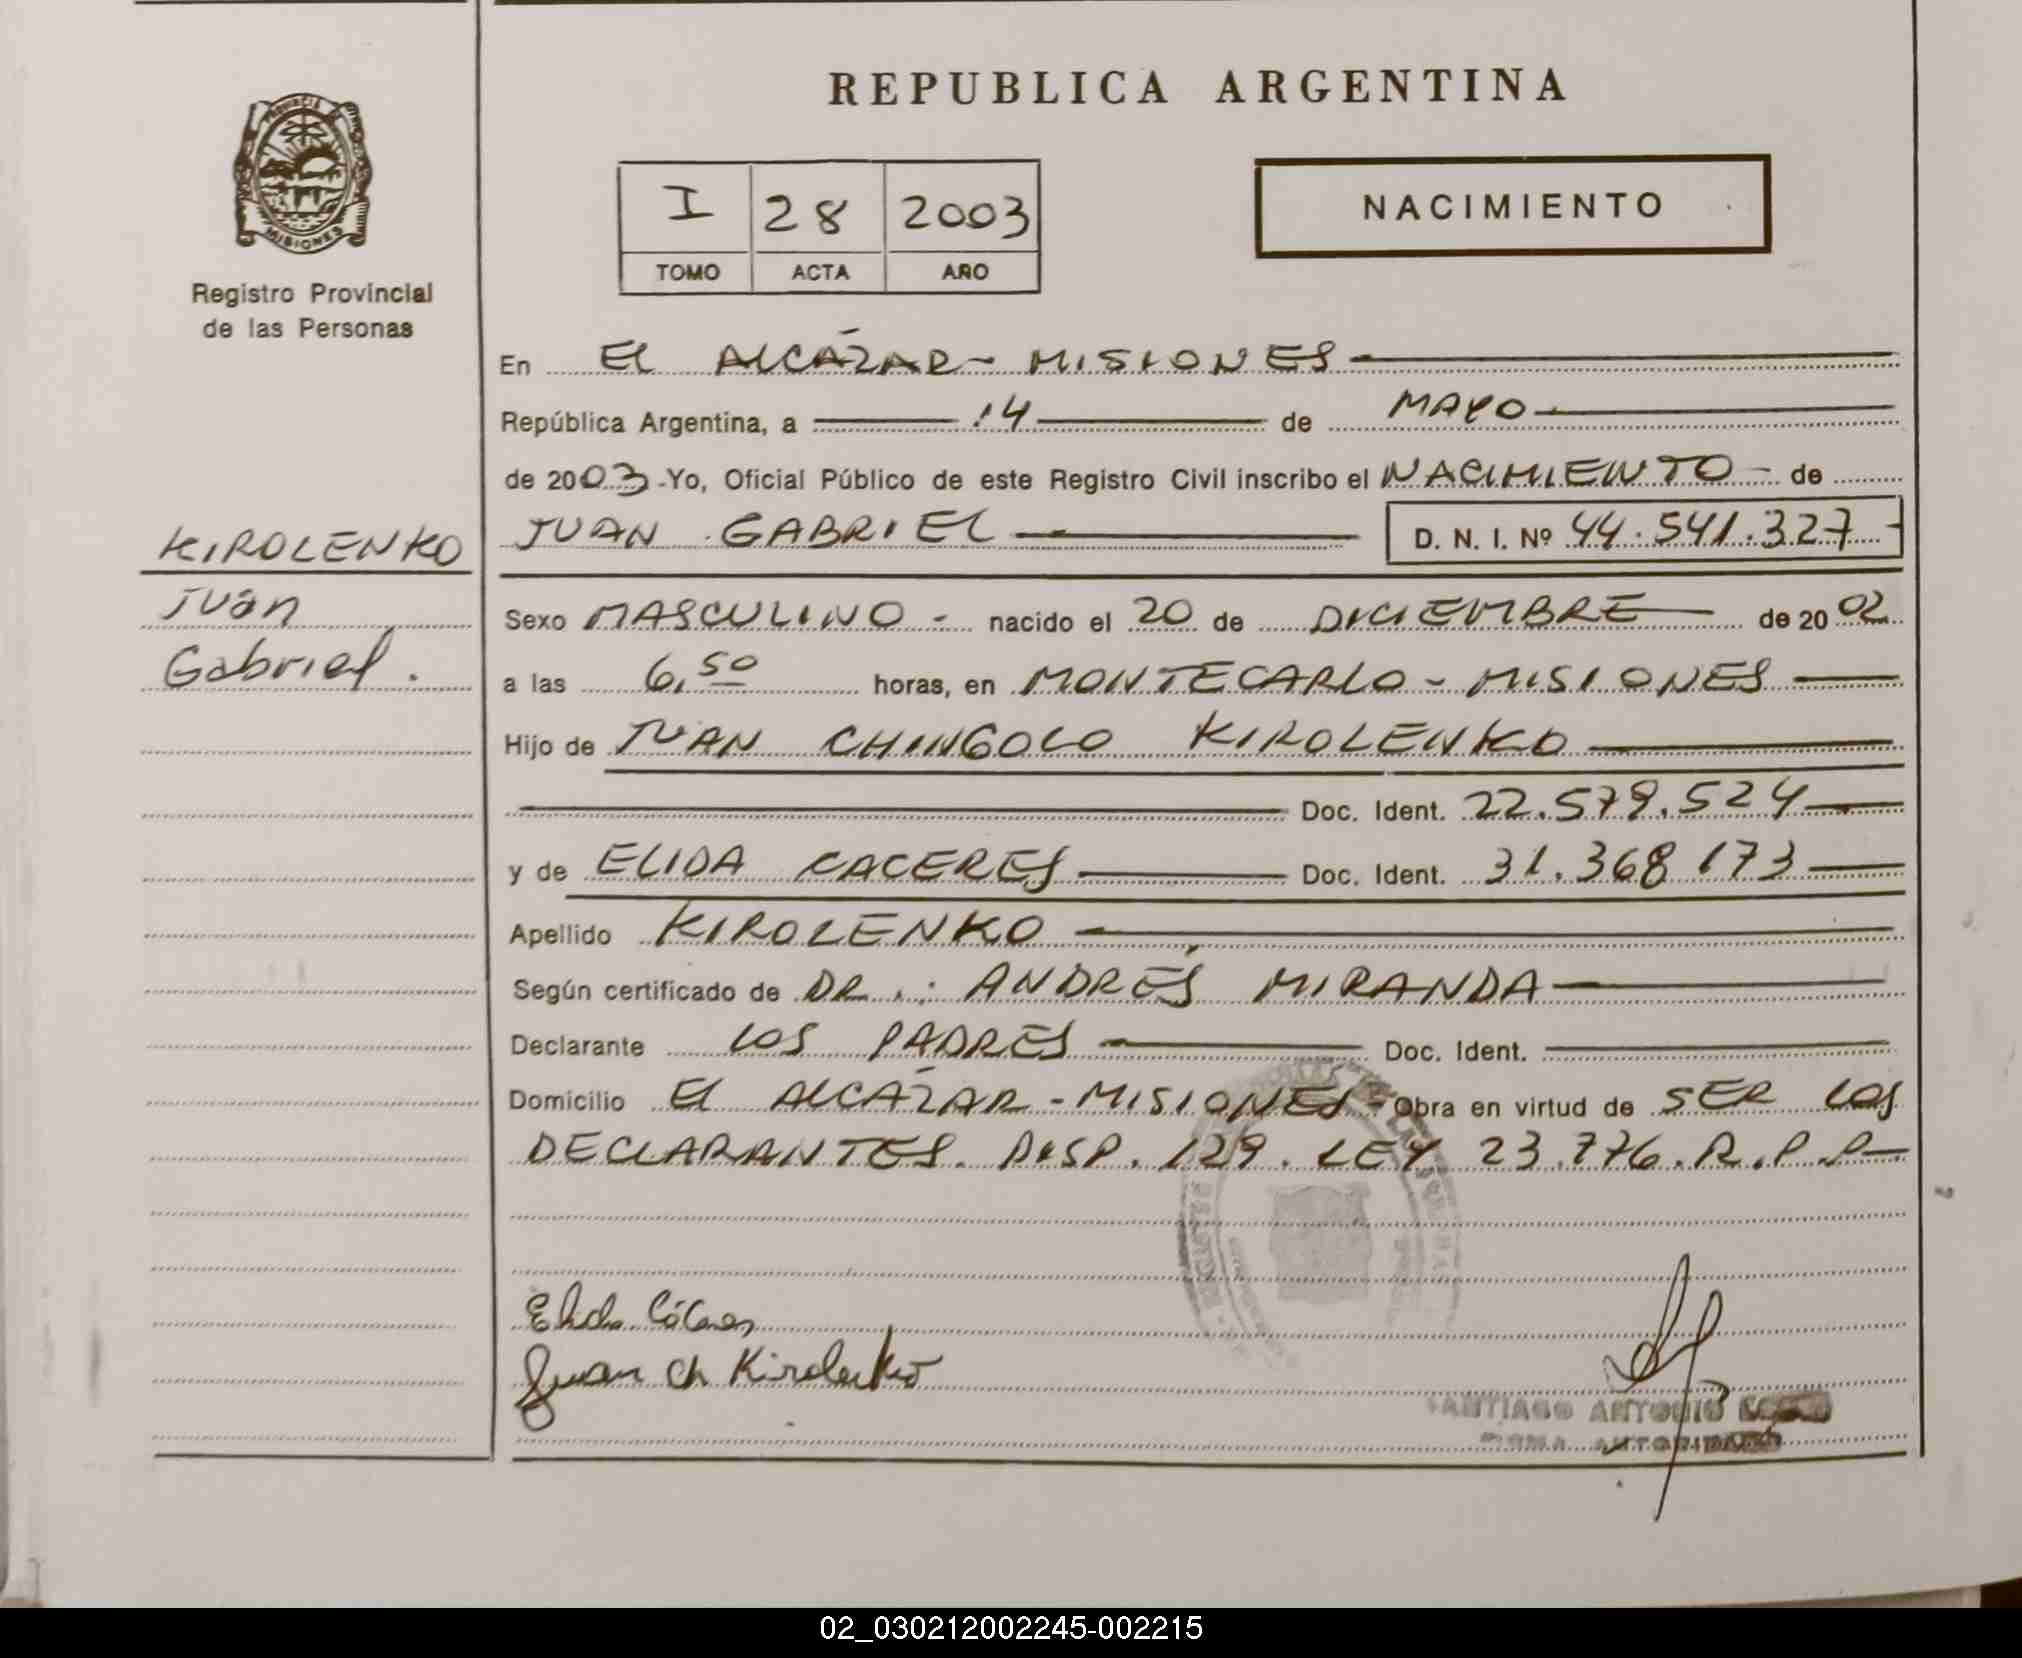 REPUBLICA ARGENTINA
PROVINCIA
MISIONES
Registro Provincial
de las Personas
I 28 2003
TOMO ACTA AÑO
NACIMIENTO
En EL ALCÁZAR - MISIONES
República Argentina, a 14 de MAYO
de 2003 - Yo, Oficial Público de este Registro Civil inscribo el NACIMIENTO - de
KIROLENKO
Juán
Gabriel.
JUAN GABRIEL D. N. I. Nº 44.541.327 -
Sexo MASCULINO - nacido el 20 de DICIEMBRE de 2002
a las 6,50 horas, en MONTECARLO - MISIONES
Hijo de JUAN CHINGOLO KIROLENKO
Doc. Ident. 22.579.524
y de ELIDA CACERES Doc. Ident. 31.368.173
Apellido KIROLENKO
Según certificado de DR.: ANDRÉS MIRANDA
Declarante LOS PADRES Doc. Ident.
Domicilio EL ALCÁZAR - MISIONES - Obra en virtud de SER LOS
DECLARANTES. DISP. 129. LEY 23.776. R.P.P.
Elida Cáceres
Juan Ch Kirolenko
SANTIAGO ANTONIO
FIRMA AUTORIZADA
02_030212002245-002215